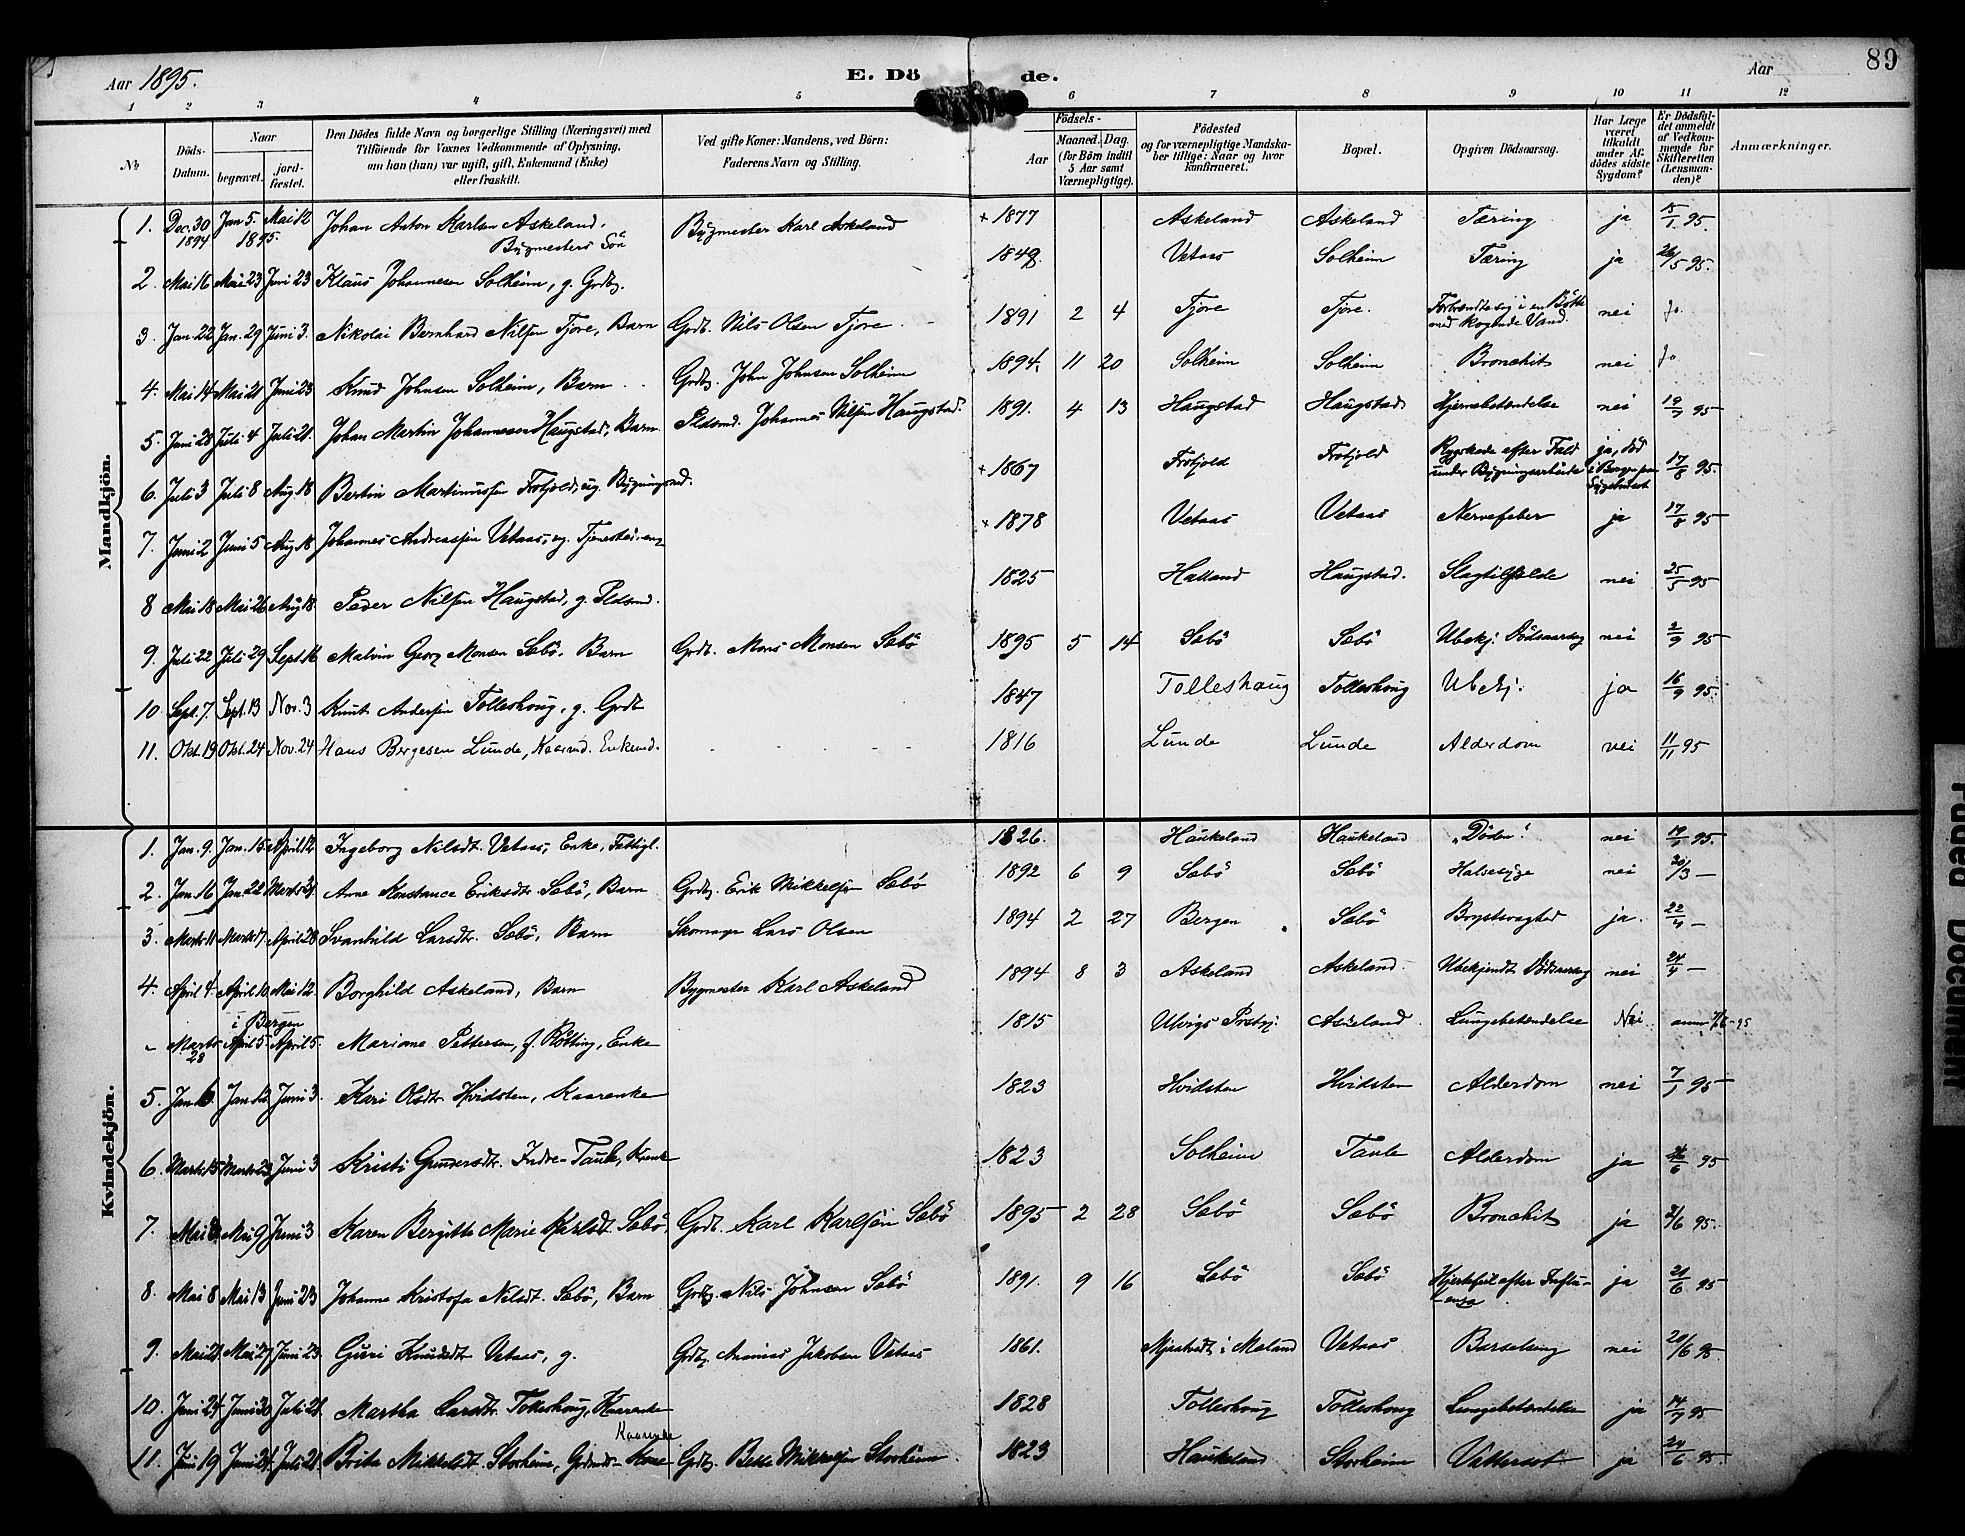 Aar 1895.
E. Döde.
Aar
89
1 2 3 4 5 6 7 8 9 10 11 12
№
Döds-Datum.
Naar
begravet.
jord-fæstet.
Den Dödes fulde Navn og borgerlige Stilling (Næringsvei) med
Tilföiende for Voxnes Vedkommende af Oplysning,
om han (hun) var ugift, gift, Enkemand (Enke)
eller fraskilt.
Ved gifte Koner: Mandens, ved Börn:
Faderens Navn og Stilling.
Födsels-
Aar
Maaned. Dag.
(for Börn indtil
5 Aar samt
Værnepligtige).
Födested
og for værnepligtige Mandska-
ber tillige: Naar og hvor
konfirmeret.
Bopæl.
Opgiven Dödsaarsag.
Har Læge
været
tilkaldt
under Af-
dödes sidste
Sygdom?
Er Dödsfal-
det anmeldt
af Vedkom-
mende for
Skifteretten
(Lensman-
den)?
Anmærkninger.
Mandkjön.
1. Dec. 30 1894 Jan 5. 1895. Mai 12 Johan Anton Karlsen Askeland, Bygmesters Sön Bygmester Karl Askeland + 1877 Askeland Askeland Tæring ja 15/1 95.
2. Mai 16 Mai 23 Juni 23 Klaus Johannesen Solheim, g. Grdbr. 1849. Vetaas Solheim Tæring ja 26/5 95.
3. Jan. 22 Jan. 29 Juni 3. Nikolai Bernhard Nilsen Tjore, Barn Grdb. Nils Olsen Tjore 1891 2 4 Tjore Tjore. Forbrændte sig i en Bötte med kogende Vand. nei Ja
4. Mai 14 Mai 21 Juni 23 Knud Johnsen Solheim, Barn Grdbr. John Johnsen Solheim 1894. 11 20 Solheim Solheim Bronchit nei Ja
5. Juni 28 Juli 4 Juli 21. Johan Martin Johannesen Haugstad, Barn Pldsmd. Johannes Nilsen Haugstad. 1891. 4 13 Haugstad Haugstad Hjernebetændelse nei 19/7 95
6. Juli 3 Juli 8 Aug. 18 Bertin Martinussen Frotjold, ug. Bygningssnd. + 1867 Frotjold Frotjold Rygskade efter Fald under Bygningsarbeide ja, död i Bergen paa Sygehuset 17/8 95.
7. Juni 2 Juni 5 Aug. 18 Johannes Andreassen Vetaas, ug. Tjenestedreng + 1878 Vetaas Vetaas Nervefeber ja 17/8 95
8 Mai 18 Mai 26 Aug 18. Peder Nilsen Haugstad, g. Pldsmd. 1825 Halland Haugstad. Slagtilfælde nei 25/5 95
9. Juli 22 Juli 29 Sept. 16 Malvin Georg Monsen Sæbö, Barn Grdb. Mons Monsen Sæbö 1895 5 14 Sæbö Sæbö Ubekj. Dödsaarsag nei 2/9 95
10. Sept. 7. Sept. 13 Nov. 3 Knut Andersen Tolleshoug, g. Grdb 1847 Tolleshaug Tolleshoug Ubekj. ja 16/9 95.
11. Okt. 19 Okt. 24 Nov. 24 Hans Bergesen Lunde, Kaarmd. Enkemd. 1816 Lunde Lunde Alderdom nei 11/11 95
Kvindekjön.
1. Jan. 9. Jan. 15 April 12 Ingeborg Nilsdt. Vetaas, Enke, Fattigl. 1826. Haukeland Haukeland „Döden". nei 95.
2. Jan. 16 Jan. 22 Marts 21 Ane Konstance Eriksdtr. Sæbö, Barn Grdbr. Erik Mikkelsen Sæbö 1892 6 9 Sæbö Sæbö Halsesyge nei 20/3 —
3. Marts 11 Marts 17. April 28 Svanhild Larsdtr. Sæbö, Barn Skomager Lars Olsen 1894 2 27 Bergen Sæbö Brystsvaghed ja. 22/4 —
4. April 4. April 10 Mai 12. Borghild Askeland, Barn Bygmester Karl Askeland 1894 8 3 Askeland Askeland Ubekjendt Dödsaarsag nei 24/4 —
- Marts 28 i Bergen April 5 April 5. Mariane Pettersen, f. Rötting, Enke 1815 Ulvigs Prstgj. Askeland Lungebetændelse Nei anm 7/6-95
5. Jan 6 Jan. 12 Juni 3. Kari Olsdtr. Hvidsten, Kaarenke 1823 Hvidsten Hvidsten Alderdom nei 95
6. Marts 15 Marts 23 Juni 3 Kristi Gundersdtr. Indre-Taule, Kenke 1823 Solheim Taule Alderdom ja 26/6 95
7. Mai Mai 9 Juni 3 Karen Bergitte Marie Karlsdt. Sæbö, Grdb. Karl Karlsen Sæbö 1895 2 28 Sæbö Sæbö Bronchit ja 95.
8. Mai 8 Mai 13 Juni 23 Johanne Kristofa Nilsdt. Sæbö, Barn Grdbr. Nils Johnsen Sæbö 1891. 9 16 Sæbö Sæbö Hjertefeil efter Influ-enza ja 21/6 95
9. Mai 21. Mai 27 Juni 23 Guri Knudsdt Vetaas, g. Grdbr. Ananias Jakobsen Vetaas 1861. Mjaatvedt i Meland Vetaas Barselseng nei 20/6 95.
10. Juni 24 Juni 30 Juli 21 Martha Larsdtr. Tolleshoug, Kaarenke 1828 Tolleshoug Tolleshoug Lungebetændelse ja 14/7 95
11. Juni 19 Juni 21. Juli 21. Brita Mikkelsdt. Storheim, Grdmds-Kone Kaarenke Grdbr. Mikkelsen Storheim. 1823 Haukeland Storheim Vattersot ja 24/6 95